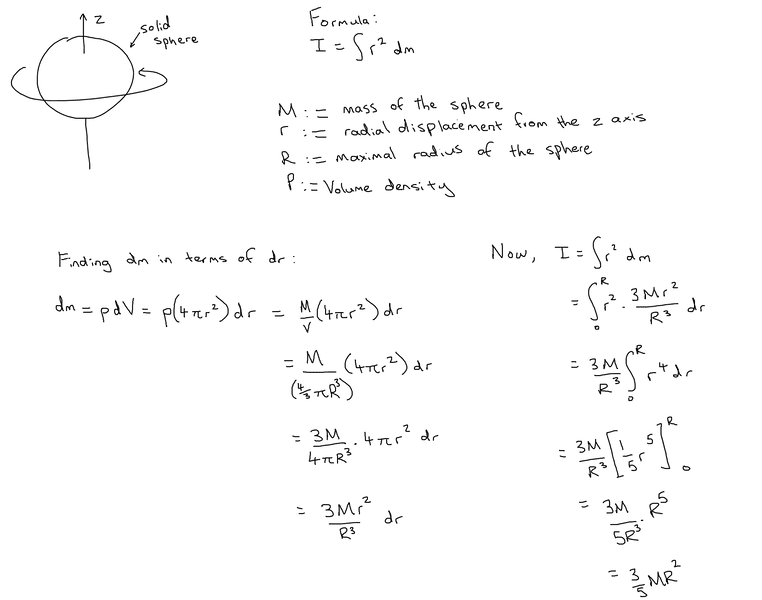 z
solid
sphere
Formula:
I = ∫ r² dm
M := mass of the sphere
r := radial displacement from the z axis
R := maximal radius of the sphere
ρ := Volume density
Finding dm in terms of dr:
dm = ρ dV = ρ(4πr²) dr = M/V (4πr²) dr
= M/(4/3 πR³) (4πr²) dr
= 3M/4πR³ · 4πr² dr
= 3Mr²/R³ dr
Now, I = ∫ r² dm
= ∫₀ᴿ r² · 3Mr²/R³ dr
= 3M/R³ ∫₀ᴿ r⁴ dr
= 3M/R³ [1/5 r⁵]₀ᴿ
= 3M/5R³ · R⁵
= 3/5 MR²